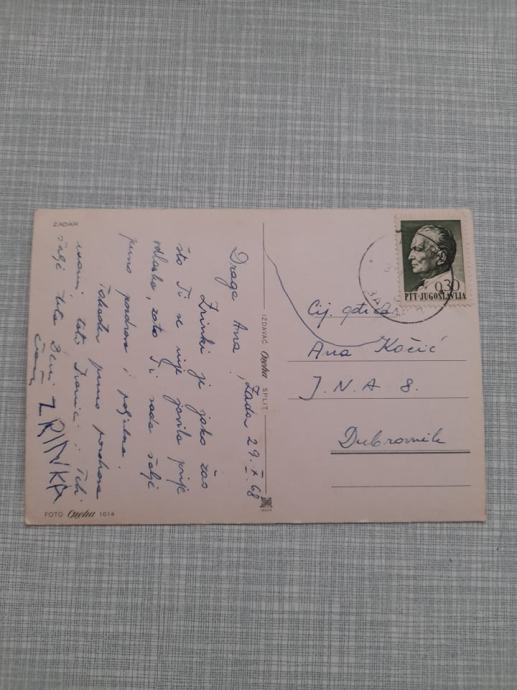 ZADAR
Draga Ana, Zadar 29. X. 68
Zrinki je jako žao
što Ti se nije javila prije
odlaska, zato Ti sada šalje
puno pozdrava i poljubaca.
Također puno pozdrava
mami, tati
šalje teta
ZRINKA
FOTO Onoha 1614
IZDAVAČ Onoha SPLIT
0,30
PTT-JUGOSLAVIJA
ZADAR
Cij. gđica
Ana Kočić
J. N. A 8.
Dubrovnik